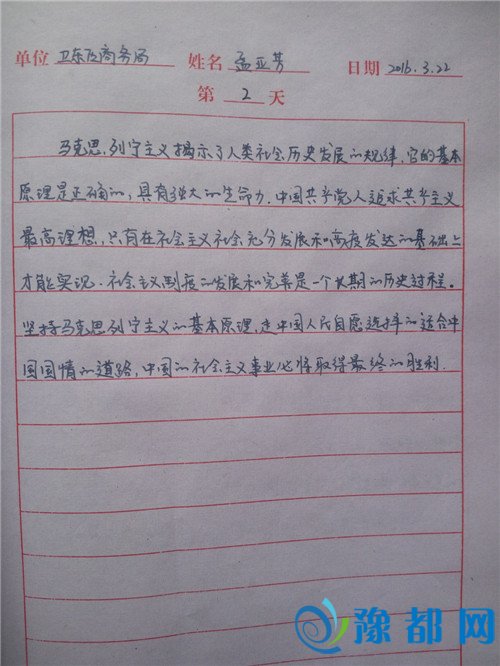 单位 卫东区商务局 姓名 孟亚芳 日期 2016.3.22
第 2 天
马克思、列宁主义揭示了人类社会历史发展的规律,它的基本
原理是正确的,具有强大的生命力,中国共产党人追求共产主义
最高理想,只有在社会主义社会充分发展和高度发达的基础上
才能实现.社会主义制度的发展和完善是一个长期的历史过程。
坚持马克思列宁主义的基本原理,走中国人民自愿选择的适合中
国国情的道路,中国的社会主义事业必将取得最终的胜利.
豫都网